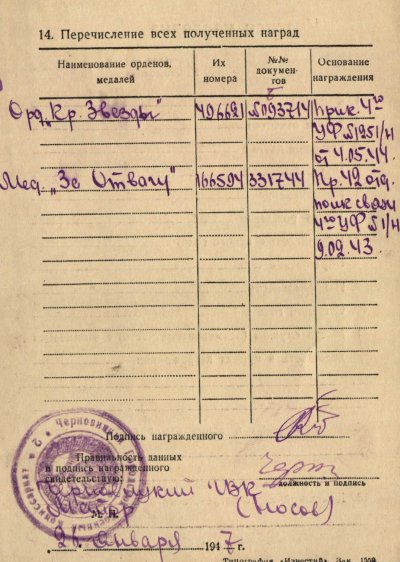 14. Перечисление всех полученных наград
Наименование орденов, медалей
Их номера
№№ документов
Основание награждения
Орд. „Кр. Звезды" 496621 №093714 Прик. 4го
УФ №1251/н
от 4.05.44.
Мед. „За Отвагу" 166594 331744 Пр. 42 отд.
полк связи
4го УФ №1/н
9.02.43
Подпись награжденного
Правильность данных
и подпись награжденного
свидетельствую:
должность и подпись
ГВК
Майор (Носов)
М. П.
21 января 1947 г.
Типография «Известий» Зак.